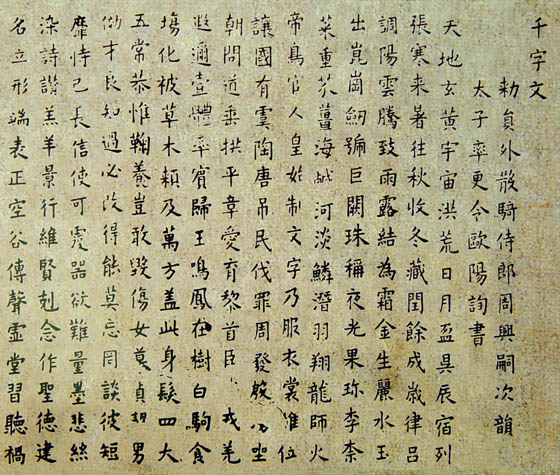 千字文
勑員外散騎侍郎周興嗣次韻
太子率更令歐陽詢書
天地玄黃宇宙洪荒日月盈昃辰宿列
張寒来暑往秋收冬藏閏餘成歲律呂
調陽雲騰致雨露結為霜金生麗水玉
出崑崗劒號巨闕珠稱夜光果珎李柰
菜重芥薑海鹹河淡鱗潛羽翔龍師火
帝鳥官人皇始制文字乃服衣裳推位
讓國有虞陶唐吊民伐罪周發殷坐
朝問道垂拱平章愛育黎首臣戎羌
遐邇壹體率賓歸王鳴鳳在樹白駒食
場化被草木賴及萬方盖此身髮四大
五常恭惟鞠養豈敢毀傷女慕貞男
效才良知過必改得能莫忘罔談彼短
靡恃己長信使可覆器欲難量墨悲絲
染詩讚羔羊景行維賢剋念作聖德建
名立形端表正空谷傳聲虛堂習聽禍